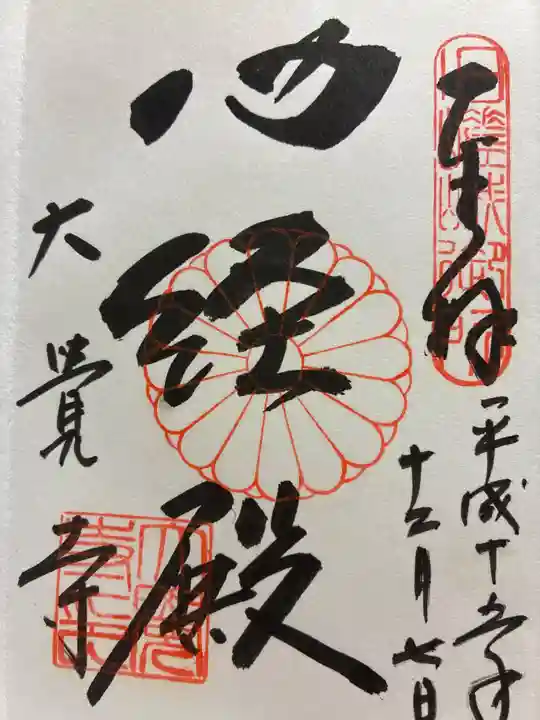 奉拝
平成十五年
十二月七日
心経殿
大覺寺